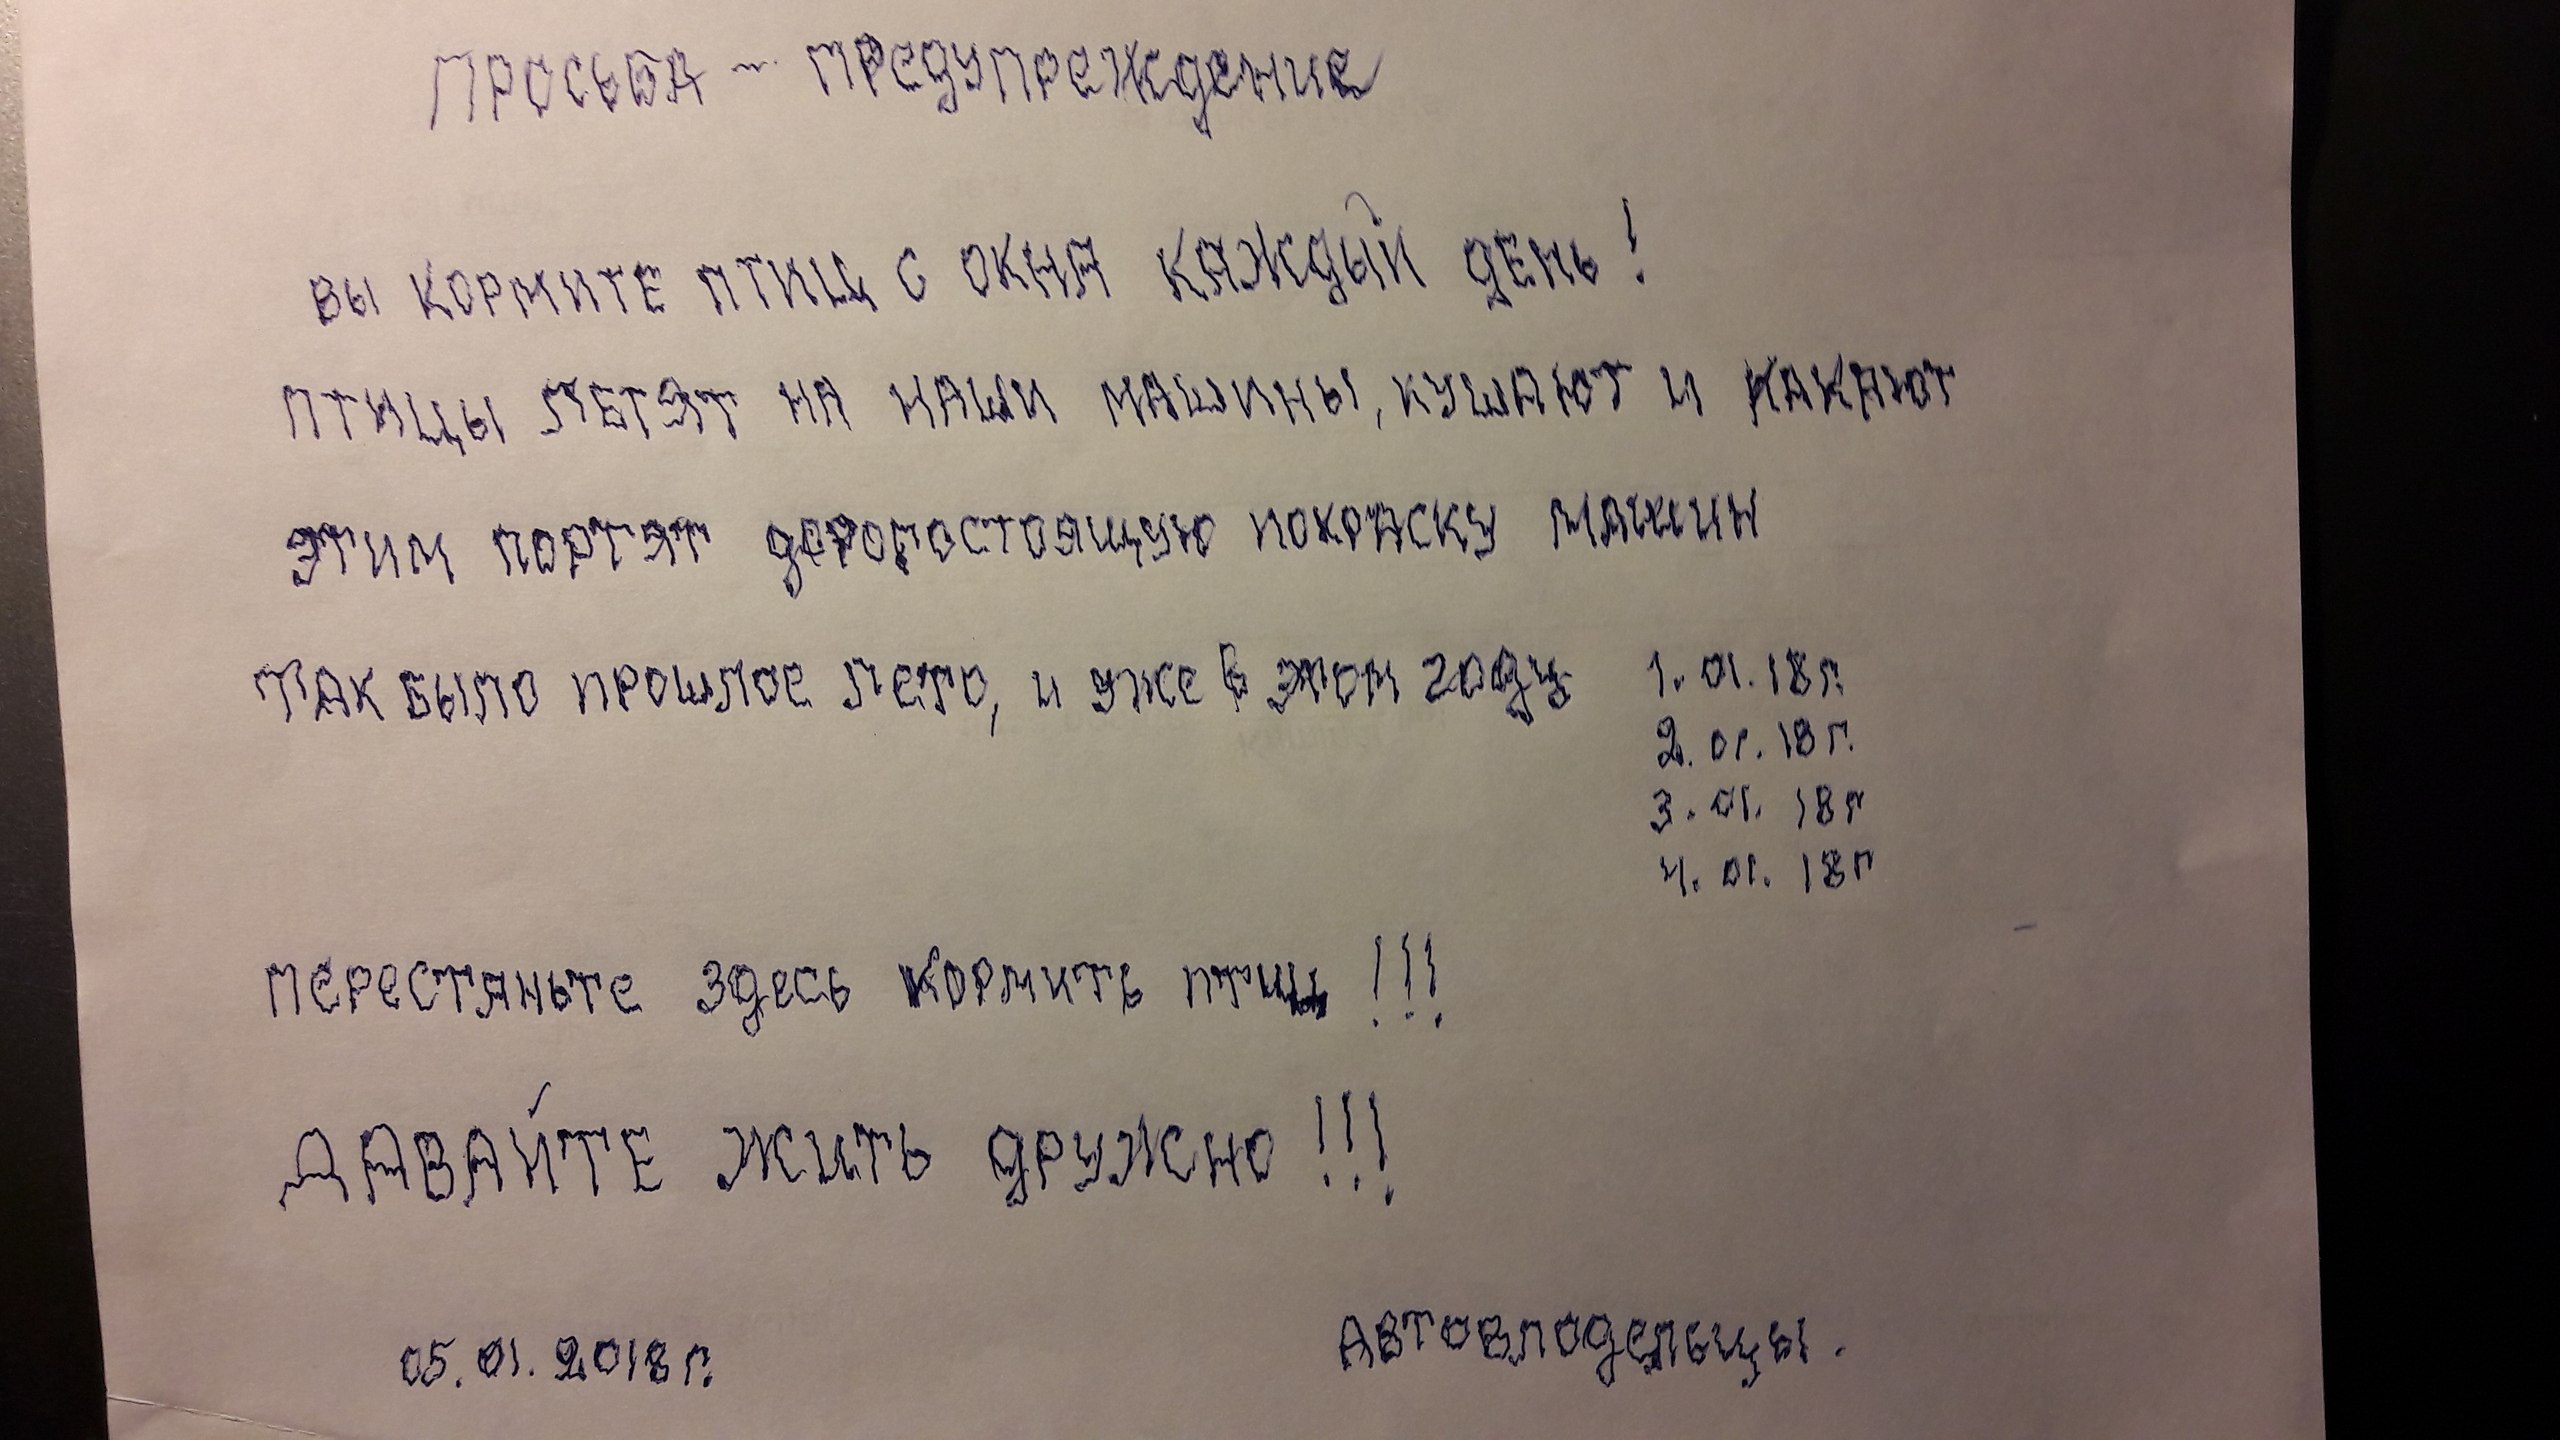 Просьба - предупреждение
Вы кормите птиц с окна каждый день!
птицы летят на наши машины, кушают и какают
этим портят дорогостоящую покраску машин
Так было прошлое лето, и уже в этом году 1.01.18г.
2.01.18г.
3.01.18г
4.01.18г
перестаньте здесь кормить птиц!!!
Давайте жить дружно!!!
05.01.2018г. Автовлодельцы.